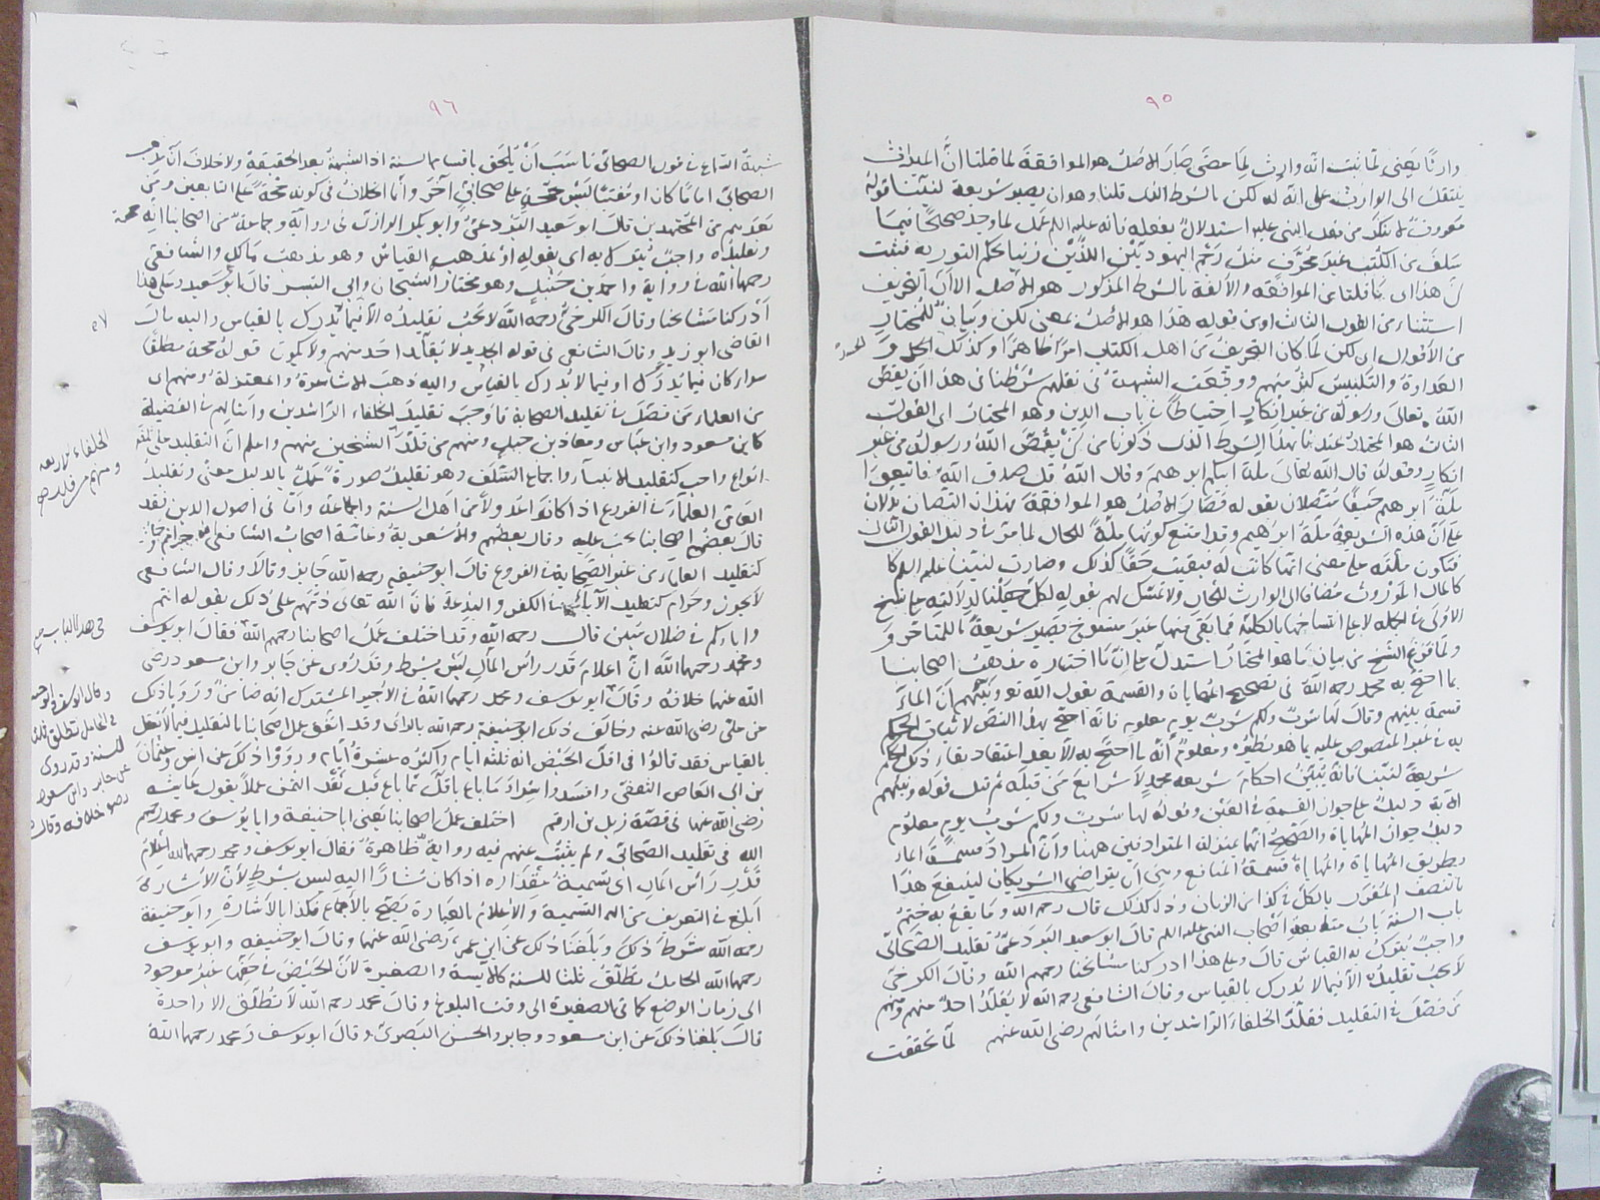 ٩٥
وارثا يعنى لما ثبت انه وارث لما مضى صار الاصل هو الموافقة لما قلنا ان الميراث
ينتقل الى الوارث على انه له لكن بالشرط الذى قلنا وهو ان يصير شريعة لنبينا قوله
معروف لا ينكر من فعل النبى عليه استدلال بفعله فانه عليه السلم عمل بما وجد صحيحا فيما
سلف من الكتب غير محرف مثل رجم اليهوديين اللذين زنيا بحكم التورية فثبت
ان هذا اى ما قلنا من الموافقة والالفة بالشرط المذكور هو الاصل الا ان التحريف
استثناء من القول الثالث او من قوله هذا هو الاصل بمعنى لكن وبيان للمختار
من الاقوال اى لكن لما كان التحريف من اهل الكتاب امرا ظاهرا وكذلك الحسد و
العداوة والتلبيس كثر منهم ووقعت الشبهة فى نقلهم شرطنا فى هذا ان يقص
الله تعالى ورسوله من غير انكار احتياطا فى باب الدين وهو المختار اى القول
الثالث هو المختار عندنا بهذا الشرط الذى ذكرنا من ان يقص الله ورسوله من غير
انكار وقوله قال الله تعالى ملة ابيكم ابرهيم وقال الله قل صدق الله فاتبعوا
ملة ابرهيم حنيفا متصلان بقوله فصار الاصل هو الموافقة بهذان النصان يدلان
على ان هذه الشريعة ملة ابرهيم وقد امتنع كونها ملة للحال لما مر فى دليل القول الثانى
فتكون ملته على معنى انها كانت له فبقيت حقا كذلك وصارت لنبينا عليه السلم كا
كالمال الموروث مضافا الى الوارث للحال ولا تمسك لهم بقوله لكل جعلنا لدلالته على نسخ
الاولى فى الجملة لا على انتساخها بالكلية فما بقى منها غير منسوخ يصير شريعة للمتاخر و
ولما فرغ الشيخ من بيان ما هو المختار استدل على ان ما اختاره مذهب اصحابنا
بما احتج به محمد رحمه الله فى تصحيح المهاياة والقسمة بقول الله تع ونبئهم ان الماء
قسمة بينهم وقال لها شرب ولكم شرب يوم معلوم فانه احتج بهذا النص لاثبات الحكم
به فى غير المنصوص عليه بما هو نظيره ومعلوم انه ما احتج به الا بعد اعتقاد بقاء ذلك الحكم
شريعة لنبينا فانه يبين احكام شريعة محمد لا شرايع من قبله ثم قيل قوله ونبئهم
الاية دليل على جواز القسمة فى العين وقوله لها شرب ولكم شرب يوم معلوم
دليل جواز المهاياة والصحيح انها بمنزلة المترادفين ههنا وان المراد قسمة الماء
بطريق المهاياة والمهاياة قسمة المنافع وهى ان يتراضى الشريكان لينتفع هذا
بالنصف المفرز بالكل فى كذا من الزمان وذاك كذلك قال رحمه الله وما يقع به ختم
باب السنة باب متابعة اصحاب النبى عليه السلم قال ابو سعيد البردعى تقليد الصحابى
واجب يترك به القياس قال وعلى هذا ادركنا مشايخنا رحمهم الله وقال الكرخى
لا يجب تقليده الا فيما لا يدرك بالقياس وقال الشافعى رحمه الله لا يقلد احد منهم ومنهم
من فصل فى التقليد فقلد الخلفاء الراشدين وامثالهم رضى الله عنهم لما تحققت
٩٦
شبهة السماع فى قول الصحابى ناسب ان يلحق باقسام السنة اذ الشبهة بعد الحقيقة ولا خلاف ان مذهب
الصحابى اماما كان او مفتيا ليس بحجة على صحابى آخر وانما الخلاف فى كونه حجة على التابعين ومن
بعدهم من المجتهدين قال ابو سعيد البردعى وابو بكر الرازى فى رواية وجماعة من اصحابنا انه حجة
وتقليده واجب يترك به اى بقوله او بمذهب القياس وهو مذهب مالك والشافعى
رحمهما الله فى رواية واحمد بن حنبل وهو مختار الشيخان وابى اليسر قال ابو سعيد وعلى هذا
ادركنا مشايخنا وقال الكرخى رحمه الله لا يجب تقليده الا فيما لا يدرك بالقياس واليه مال
القاضى ابو زيد وقال الشافعى فى قوله الجديد لا يقلد احد منهم ولا يكون قوله حجة مطلقا
سواء كان فيما يدرك او فيما لا يدرك بالقياس واليه ذهب الاشاعرة والمعتزلة ومنهم اى
من العلماء من فصل فى تقليد الصحابة فاوجب تقليد الخلفاء الراشدين وامثالهم فى الفضيلة
كابن مسعود وابن عباس ومعاذ بن جبل ومنهم من قلد الشيخين منهم واعلم ان التقليد على ثلثة
انواع واجب كتقليد الانبياء واجماع السلف وهو تقليد صورة عمل بالدليل معنى وتقليد
العامى العلماء فى الفروع اذا كانوا عدولا من اهل السنة والجماعة واما فى اصول الدين فقد
قال بعض اصحابنا يجب عليه وقال بعضهم والاشعرية وعامة اصحاب الشافعى حرام وجائز
كتقليد العامى من غير الصحابة فى الفروع قال ابو حنيفه رحمه الله جايز وقالا وقال الشافعى
لا يجوز وحرام كتقليد الآباء فى الكفر والبدعة فان الله تعالى ذمهم على ذلك بقوله انتم
واباؤكم فى ضلال مبين قال رحمه الله وقد اختلف عمل اصحابنا رحمهم الله فقال ابو يوسف
ومحمد رحمهما الله ان اعلام قدر راس المال ليس بشرط وقد روى عن جابر وابن مسعود رضى
الله عنهما خلافه وقال ابو يوسف ومحمد رحمهما الله فى الاجير المشترك انه ضامن ورويا ذلك
عن على رضى الله عنه وخالف ذلك ابو حنيفة رحمه الله بالراى وقد اتفق عمل اصحابنا بالتقليد فيما لا يعقل
بالقياس فقد قالوا فى اقل الحيض انه ثلثة ايام واكثره عشرة ايام ورووا ذلك عن انس وعثمان
بن ابى العاص الثقفى وافسدوا شراء ما باع باقل مما باع قبل نقد الثمن عملا بقول عايشة
رضى الله عنها فى قصة زيد بن ارقم اختلف عمل اصحابنا يعنى ابا حنيفة وابا يوسف ومحمد رحمهم
الله فى تقليد الصحابى ولم يثبت عنهم فيه رواية ظاهرة فقال ابو يوسف ومحمد رحمهما الله اعلام
قدر راس المال اى تسمية مقداره اذا كان مشارا اليه ليس بشرط لان الاشارة
ابلغ فى التعريف من التسمية والاعلام بالعبارة يصح بالاجماع فكذا بالاشارة وابو حنيفة
رحمه الله شرط ذلك وبلغنا ذلك عن ابن عمر رضى الله عنهما وقال ابو حنيفه وابو يوسف
رحمهما الله الحامل تطلق ثلثا للسنة كالايسة والصغيرة لان الحيض فى حقها غير موجود
الى زمان الوضع كما فى الصغيرة الى وقت البلوغ وقال محمد رحمه الله لا تطلق الا واحدة
قال بلغنا ذلك عن ابن مسعود وجابر والحسن البصرى وقال ابو يوسف ومحمد رحمهما الله
الخلفاء الاربعة
ومنهم من قلد
فى هذا الباب صح
وقال ابو يوسف وابو حنيفة
فى الحامل تطلق ثلثا
للسنة وقد روى
عن جابر وابن مسعود
رضى خلافه وقال